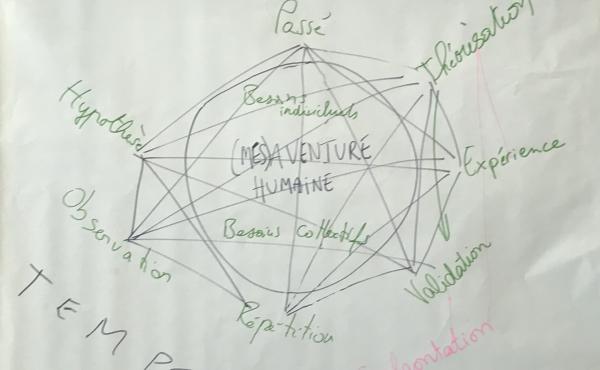 Passé
Théorisation
Hypothèse
Besoins
individuels
(MES)AVENTURE
HUMAINE
Expérience
Observation
Besoins collectifs
Validation
Répétition